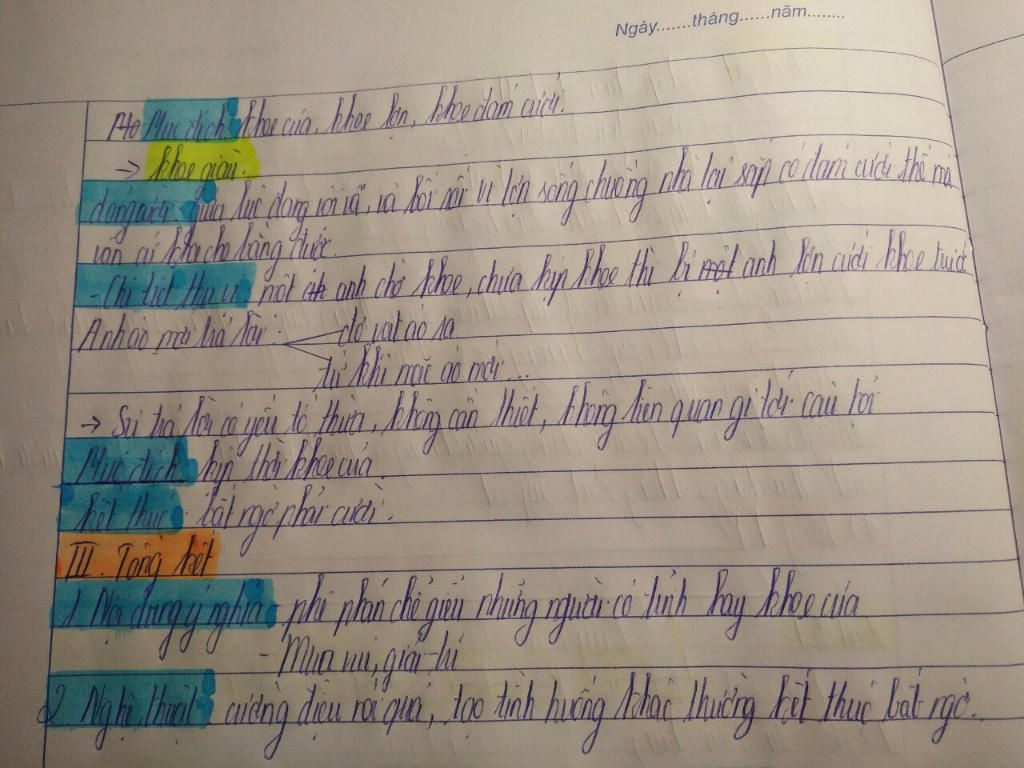 Ngày.......tháng......năm........
Mục đích khoe của, khoe lợn, khoe đám cưới.
→ khoe giàu.
lúc đang rối rã, và bối rối vì lợn sổng chuồng nhà lại sắp có đám cưới thế mà
vẫn cứ khoe cho bằng được.
- Chi tiết thú vị một anh chờ khoe, chưa kịp khoe thì bị một anh lợn cưới khoe trước
Anh áo mới trả lời: giơ vạt áo ra
từ khi mặc áo mới...
→ Sự trả lời có yếu tố thừa, không cần thiết, không liên quan gì tới câu hỏi
Mục đích kịp thời khoe của
kết thúc - bất ngờ phải cười.
III. Tổng kết
1 Nội dung ý nghĩa - phê phán chế giễu những người có tính hay khoe của
- Mua vui, giải trí
2 Nghệ thuật: cường điệu nói quá, tạo tình huống khác thường kết thúc bất ngờ.